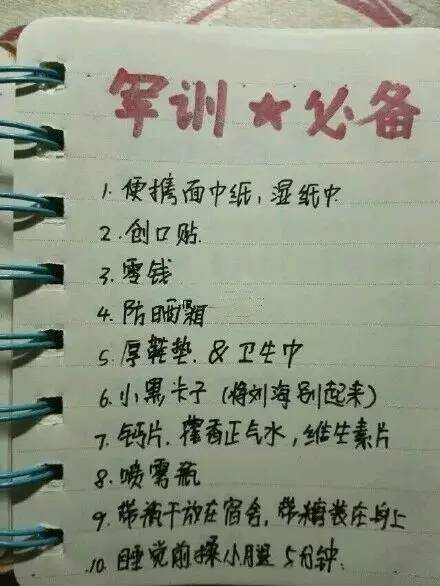 军训★必备
1.便携面巾纸，湿纸巾
2.创口贴
3.零钱
4.防晒霜
5.厚鞋垫.&卫生巾
6.小黑卡子（将刘海别起来）
7.钙片.藿香正气水，维生素片
8.喷雾瓶
9.带饼干放在宿舍，带糖装在身上
10.睡觉前揉小腿5分钟.